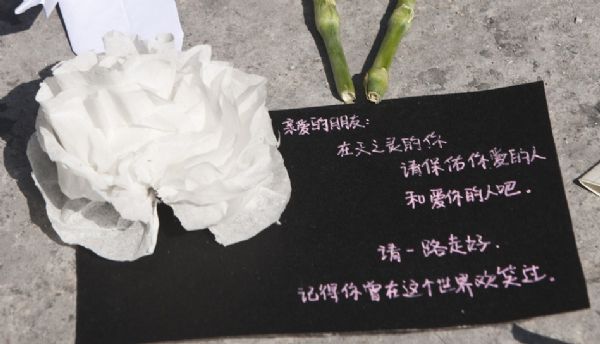 亲爱的朋友：
在天之灵的你
请保佑你爱的人
和爱你的人吧.
请一路走好.
记得你曾在这个世界欢笑过.